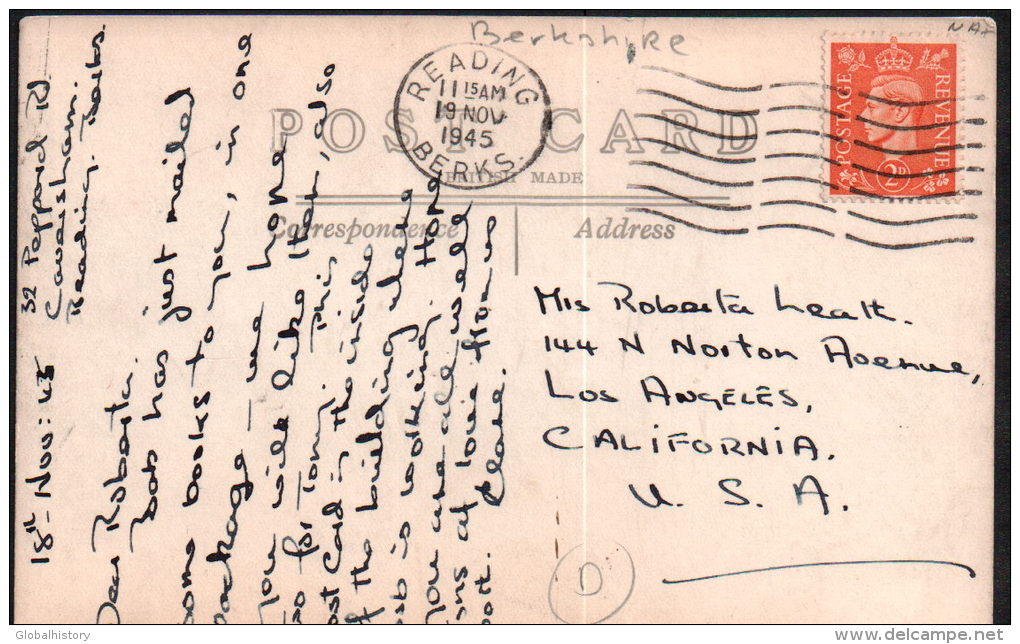 Berkshire
READING
11 15AM
19 NOV
1945
BERKS.
POSTAGE
REVENUE
2D
POST CARD
BRITISH MADE
Correspondence
Address
32 Peppard Rd
Caversham.
Reading. Berks.
18th Nov: 45
Dear Roberta.
Bob has just mailed
some books to you, in one
package — we hope
you will like them, also
for Tony. This
ost Card is the inside
f the building where
ob is working. Hope
you are all well
ons of love from us
Clare.
Mrs Roberta Leath.
144 N Norton Avenue,
LOS ANGELES,
CALIFORNIA.
U. S. A.
D
Globalhistory
delcampe.net